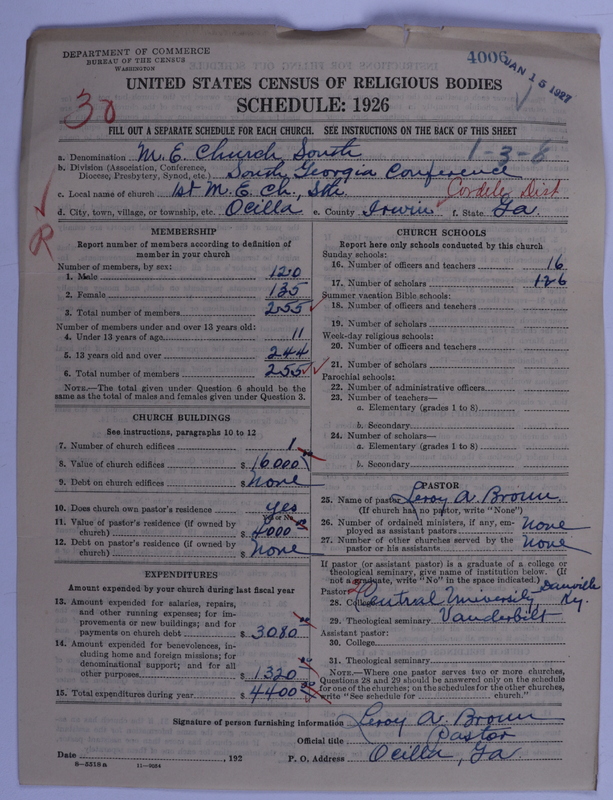 DEPARTMENT OF COMMERCE
BUREAU OF THE CENSUS
WASHINGTON
4006
JAN 15 1927
UNITED STATES CENSUS OF RELIGIOUS BODIES
SCHEDULE: 1926
30
FILL OUT A SEPARATE SCHEDULE FOR EACH CHURCH. SEE INSTRUCTIONS ON THE BACK OF THIS SHEET
1-3-8
a. Denomination M. E. Church South
b. Division (Association, Conference, Diocese, Presbytery, Synod, etc.) South Georgia Conference
c. Local name of church 1st M. E. Ch., Sth. Cordele Dist
d. City, town, village, or township, etc. Ocilla e. County Irwin f. State Ga
R
MEMBERSHIP
Report number of members according to definition of member in your church
Number of members, by sex:
1. Male 120
2. Female 135
3. Total number of members 255
Number of members under and over 13 years old:
4. Under 13 years of age 11
5. 13 years old and over 244
6. Total number of members 255
NOTE.—The total given under Question 6 should be the same as the total of males and females given under Question 3.
CHURCH BUILDINGS
See instructions, paragraphs 10 to 12
7. Number of church edifices 1
8. Value of church edifices $ 16000 00
9. Debt on church edifices $ None
10. Does church own pastor's residence yes
Yes or No
11. Value of pastor's residence (if owned by church) $ 4000
12. Debt on pastor's residence (if owned by church) $ None
EXPENDITURES
Amount expended by your church during last fiscal year
13. Amount expended for salaries, repairs, and other running expenses; for improvements or new buildings; and for payments on church debt $ 3080 00
14. Amount expended for benevolences, including home and foreign missions; for denominational support; and for all other purposes $ 1320 00
15. Total expenditures during year $ 4400 00
CHURCH SCHOOLS
Report here only schools conducted by this church
Sunday schools:
16. Number of officers and teachers 16
17. Number of scholars 126
Summer vacation Bible schools:
18. Number of officers and teachers
19. Number of scholars
Week-day religious schools:
20. Number of officers and teachers
21. Number of scholars
Parochial schools:
22. Number of administrative officers
23. Number of teachers—
a. Elementary (grades 1 to 8)
b. Secondary
24. Number of scholars—
a. Elementary (grades 1 to 8)
b. Secondary
PASTOR
25. Name of pastor Leroy A. Brown
(If church has no pastor, write "None")
26. Number of ordained ministers, if any, employed as assistant pastors None
27. Number of other churches served by the pastor or his assistants None
If pastor (or assistant pastor) is a graduate of a college or theological seminary, give name of institution below. (If not a graduate, write "No" in the space indicated.)
Pastor:
28. College Central University Danville Ky.
29. Theological seminary Vanderbilt
Assistant pastor:
30. College
31. Theological seminary
NOTE.—Where one pastor serves two or more churches, Questions 28 and 29 should be answered only on the schedule for one of the churches; on the schedules for the other churches, write "See schedule for church."
Signature of person furnishing information Leroy A. Brown
Official title Pastor
Date , 192 P. O. Address Ocilla, Ga.
8-5518a 11-9084